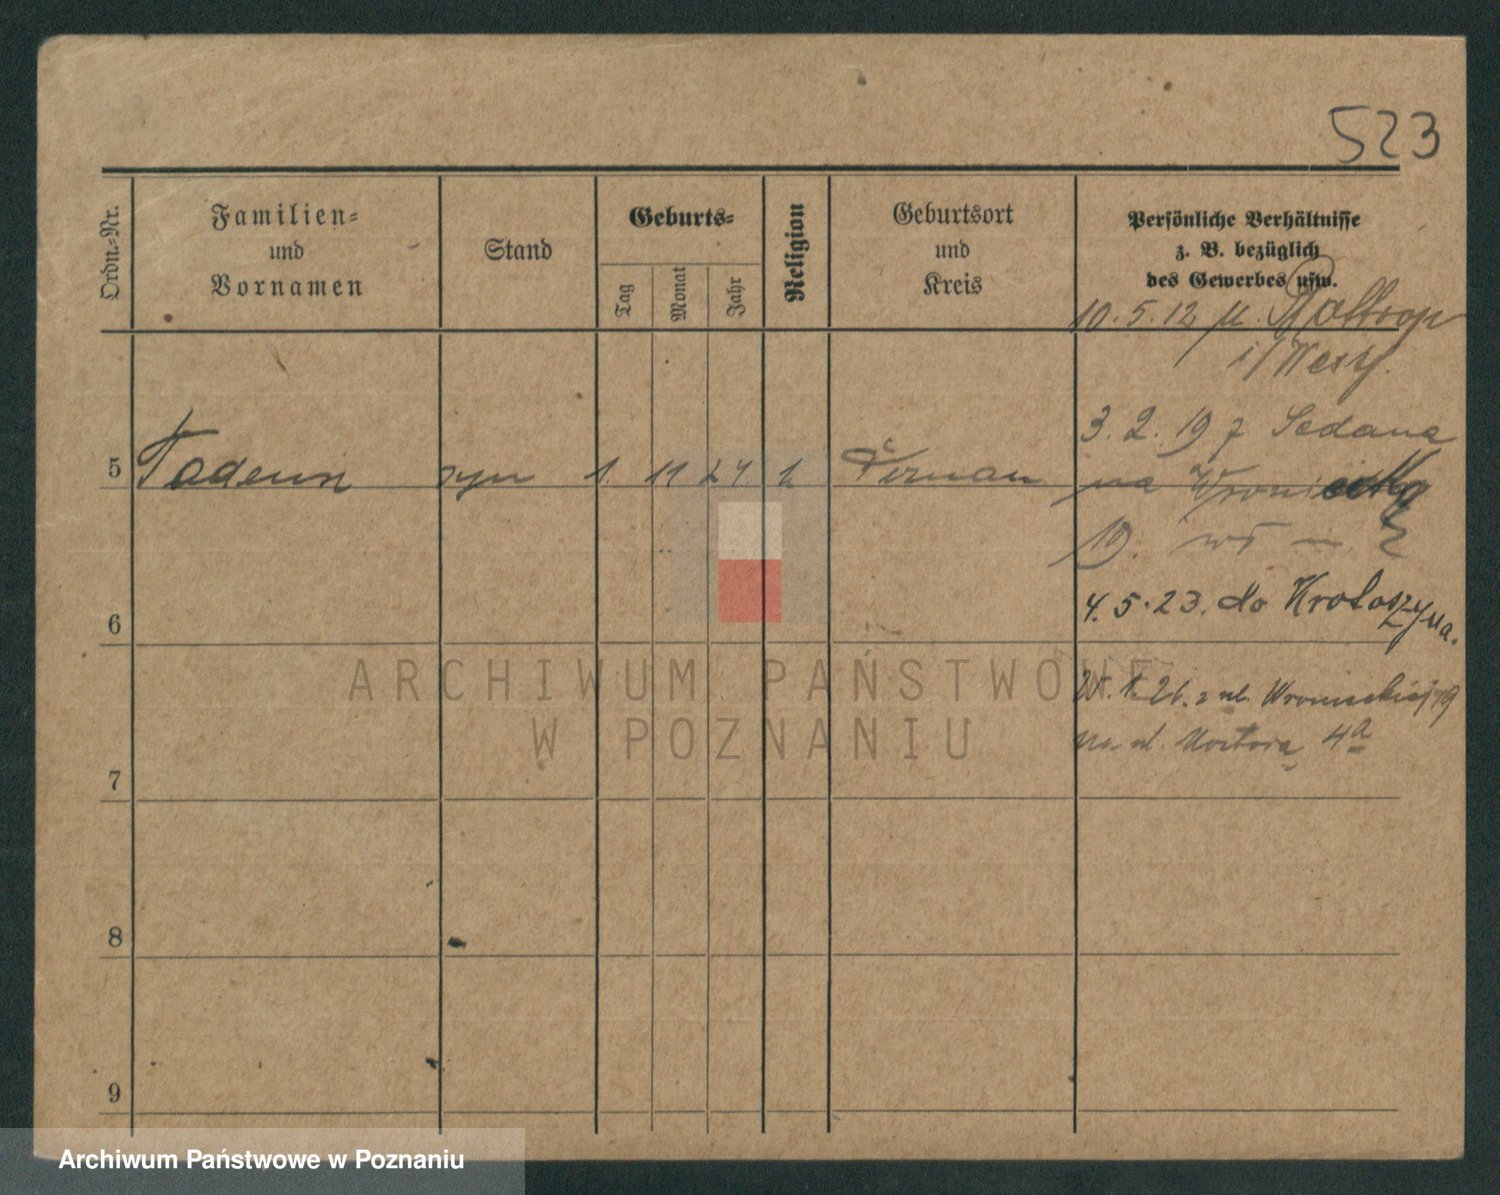 523
Ordn.-Nr.
Familien-
und
Vornamen
Stand
Geburts-
Tag
Monat
Jahr
Religion
Geburtsort
und
Kreis
Persönliche Verhältnisse
z. B. bezüglich
des Gewerbes usw.
10. 5. 12
i/Westf.
3. 2. 19 z Sedana
5 Tadeusz syn 1. 11 24 k Poznan na Wroniecką
19.
4. 5. 23. do Krotoszyna.
6
1. 26. z ul. Wronieckiej 19
na ul. 4a
7
8
9
ARCHIWUM PAŃSTWOWE
W POZNANIU
Archiwum Państwowe w Poznaniu